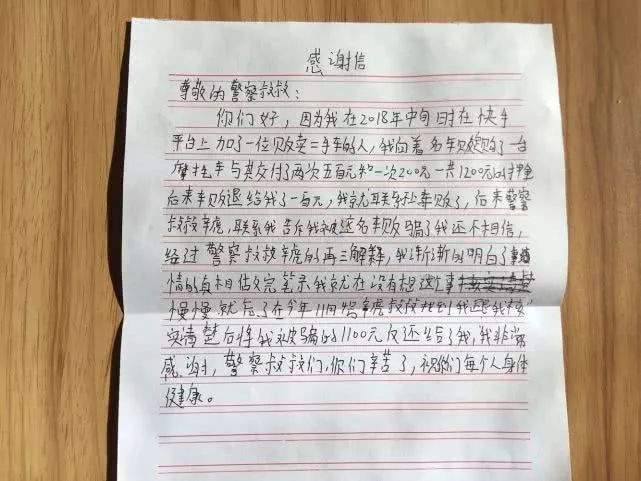 感谢信
尊敬的警察叔叔：
你们好，因为我在2018年中旬时在快手
平台上加了一位贩卖二手车的人，我向着名车贩购了一台
摩托车与其交付了两次五百元和一次200元一共1200元的押金
后来车贩退给我了一百元，我就联系让卖贩了，后来警察
叔叔辛虎，联系我告诉我被这名车贩骗了我还不相信，
经过警察叔叔辛虎的再三解释，我渐渐的明白了事
情的真相估文完笔录我就在没有想这事
慢慢就忘了在今年11月份辛虎叔叔找到我跟我核
实清楚后将我被骗的1100元反还给了我，我非常
感谢，警察叔叔们，你们辛苦了，祝你们每个人身体
健康。